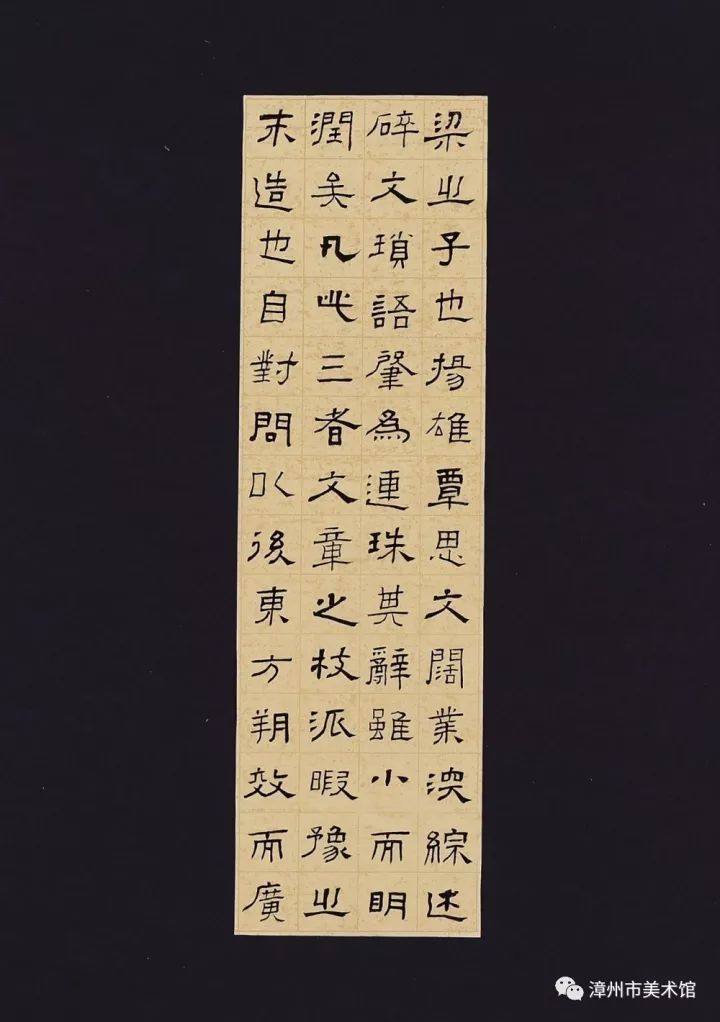 梁之子也揚雄覃思文闊業深綜述
碎文瑣語肇為連珠其辭雖小而明
潤矣凡此三者文章之枝派暇豫之
末造也自對問以後東方朔效而廣
漳州市美术馆